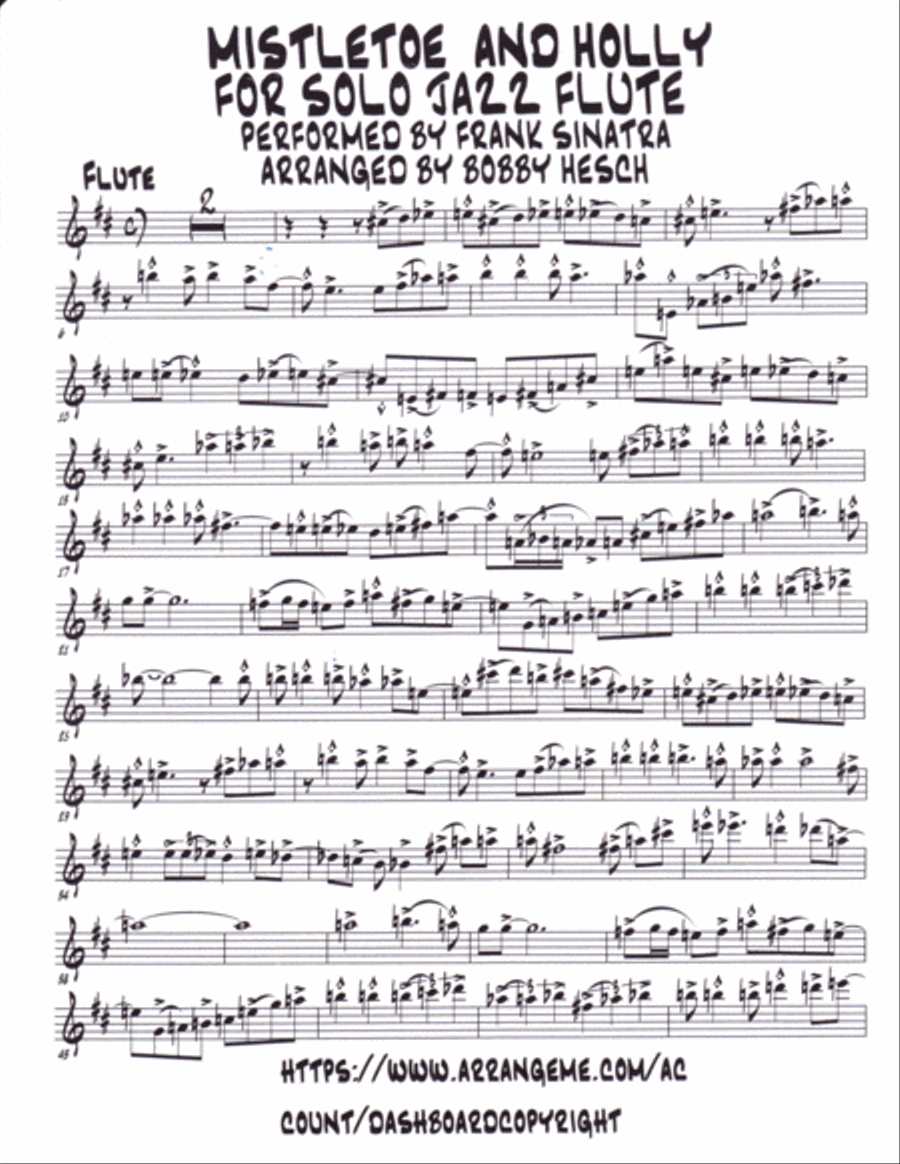 MISTLETOE AND HOLLY
FOR SOLO JAZZ FLUTE
PERFORMED BY FRANK SINATRA
ARRANGED BY BOBBY HESCH
FLUTE
2
6
3
10
13
3
17
3
21
3
25
29
34
3
38
43
3
3
HTTPS://WWW.ARRANGEME.COM/AC
COUNT/DASHBOARDCOPYRIGHT